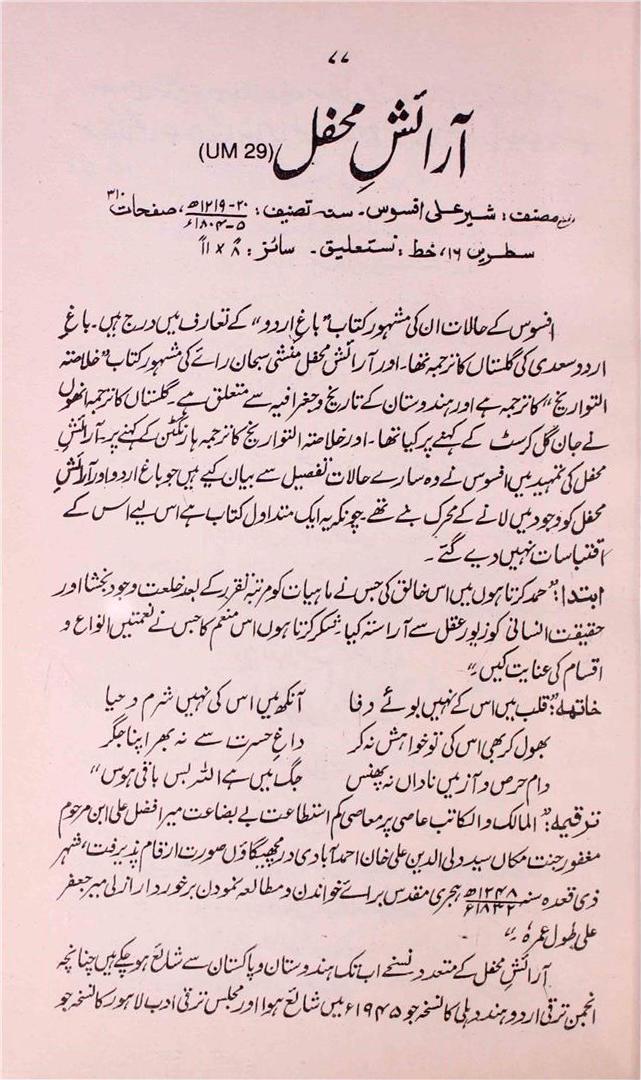 ۷۷
آرائشِ محفل (UM 29)
مصنف: شیر علی افسوس۔ سنہ تصنیف: ۲۰-۱۲۱۹ھ / ۵-۱۸۰۴ء، صفحات ۳۱۰
سطریں ۱۶، خط: نستعلیق۔ سائز: "۸ x "۱۱
افسوس کے حالات ان کی مشہور کتاب "باغِ اردو" کے تعارف میں درج ہیں۔ باغِ
اردو سعدی کی گلستاں کا ترجمہ تھا۔ اور آرائش محفل منشی سبحان رائے کی مشہور کتاب "خلاصتہ
التواریخ" کا ترجمہ ہے اور ہندوستان کے تاریخ و جغرافیہ سے متعلق ہے۔ گلستاں کا ترجمہ انھوں
نے جان گل کرسٹ کے کہنے پر کیا تھا۔ اور خلاصتہ التواریخ کا ترجمہ ہارنگٹن کے کہنے پر۔ آرائشِ
محفل کی تمہید میں افسوس نے وہ سارے حالات تفصیل سے بیان کیے ہیں جو باغ اردو اور آرائشِ
محفل کو وجود میں لانے کے محرک بنے تھے۔ چونکہ یہ ایک متداول کتاب ہے اس لیے اس کے
اقتباسات نہیں دیے گئے۔
ابتدا: "حمد کرتا ہوں میں اس خالق کی جس نے ماہیات کو مرتبۂ تقرر کے بعد خلعت وجود بخشا اور
حقیقت انسانی کو زیور عقل سے آراستہ کیا۔ شکر کرتا ہوں اس منعم کا جس نے نعمتیں انواع و
اقسام کی عنایت کیں۔"
خاتمہ: "قلب میں اس کے نہیں بوئے وفا آنکھ میں اس کی نہیں شرم و حیا
بھول کر بھی اس کی تو خواہش نہ کر داغِ حسرت سے نہ بھر اپنا جگر
دام حرص و آز میں ناداں نہ پھنس جگ میں ہے اللہ بس باقی ہوس"
ترقیمہ: "المالک و الکاتب عاصی پر معاصی کم استطاعت بے بضاعت میر افضل علی ابن مرحوم
مغفور جنت مکاں سید ولی الدین علی خان احمد آبادی در مچھیگاؤں صورت ارقام پذیرفت، شہر
ذی قعدہ سنہ ۱۲۴۸ھ / ۱۸۳۲ء ہجری مقدس برائے خواندن و مطالعہ نمودن برخوردار ازلی میر جعفر
علی طول عمرہٗ۔"
آرائشِ محفل کے متعدد نسخے اب تک ہندوستان و پاکستان سے شائع ہو چکے ہیں چنانچہ
انجمن ترقی اردو ہند دہلی کا نسخہ جو ۱۹۴۵ء میں شائع ہوا اور مجلس ترقی ادب لاہور کا نسخہ جو